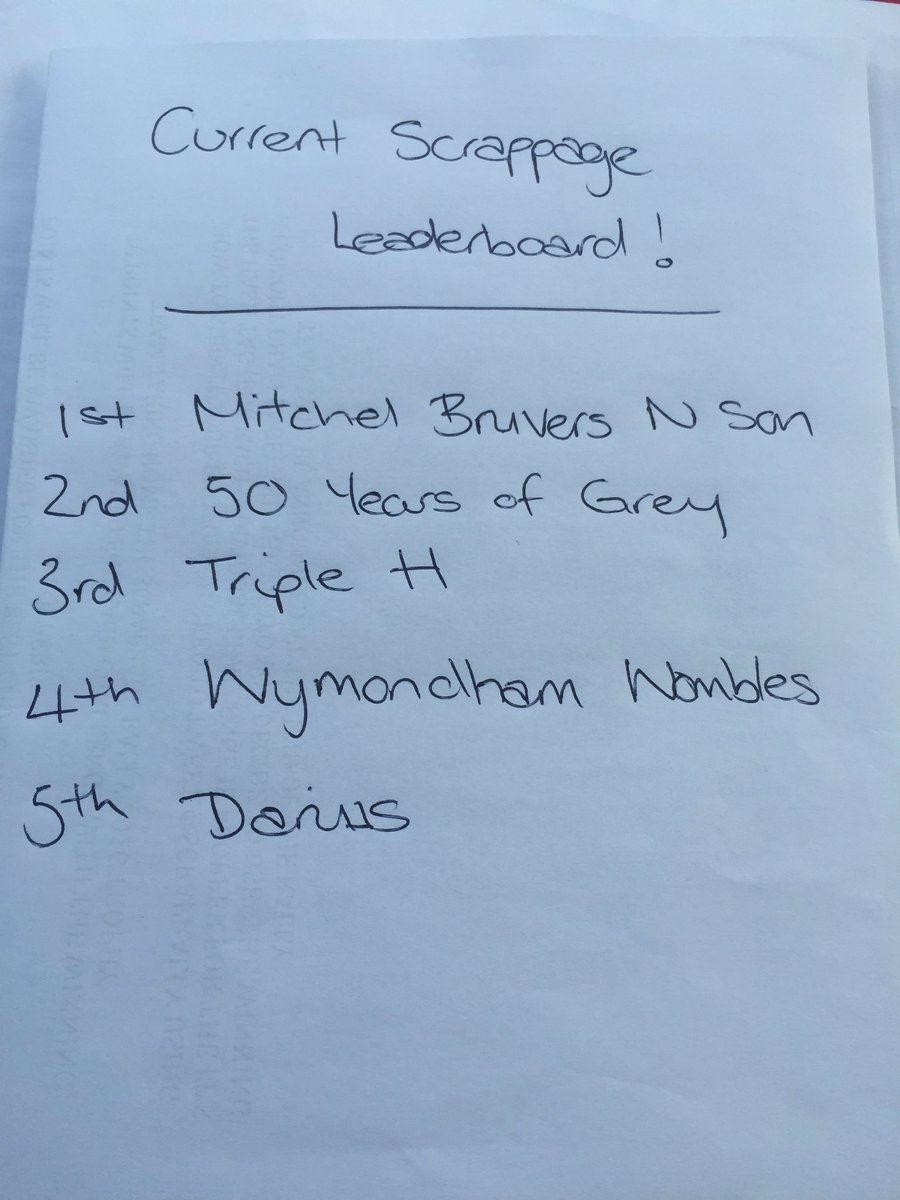 Current Scrappage
Leaderboard!
1st Mitchel Bruvers N Son
2nd 50 Years of Grey
3rd Triple H
4th Wymondham Wombles
5th Darius